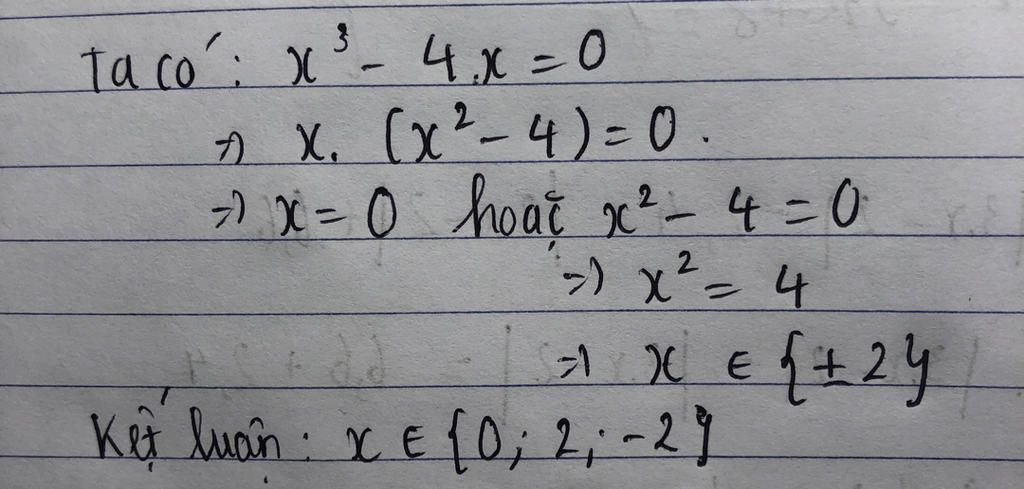 Ta có: x³ - 4.x = 0
=> x. (x² - 4) = 0.
=> x = 0 hoặc x² - 4 = 0
=> x² = 4
=> x ∈ {± 2}
Kết luận: x ∈ {0; 2; -2}